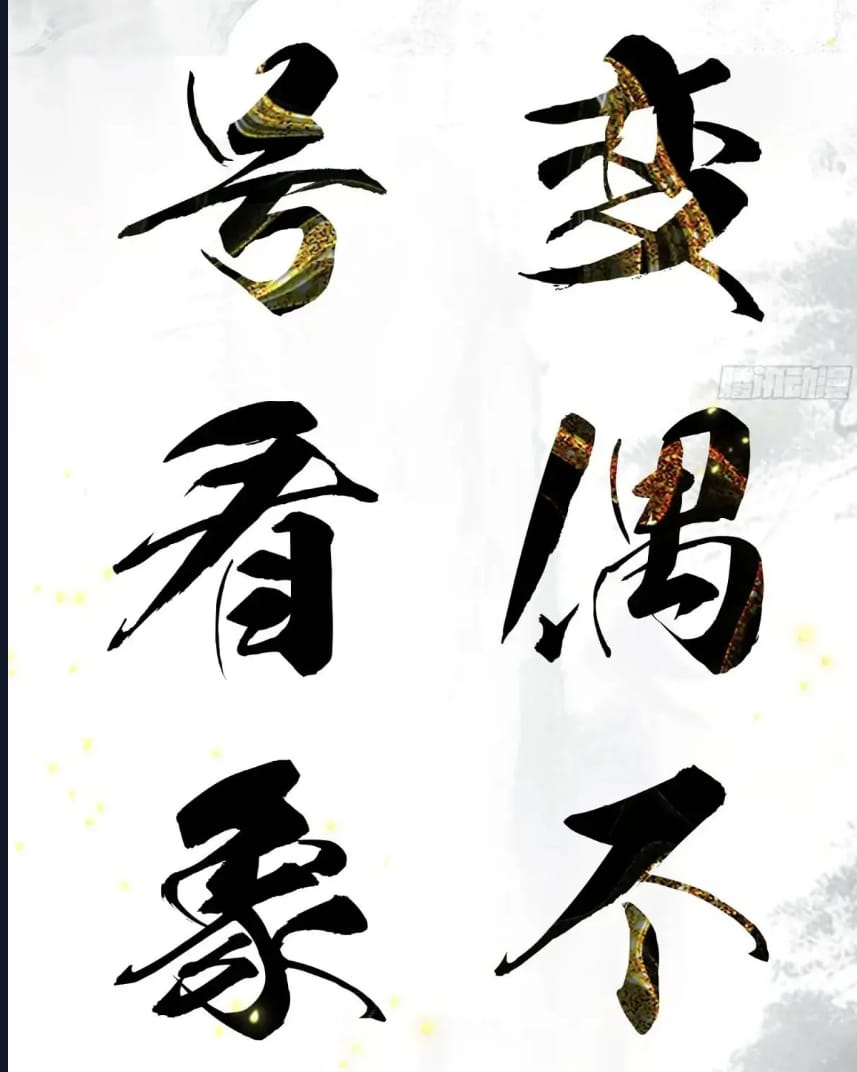 变偶不
号看象
腾讯动漫